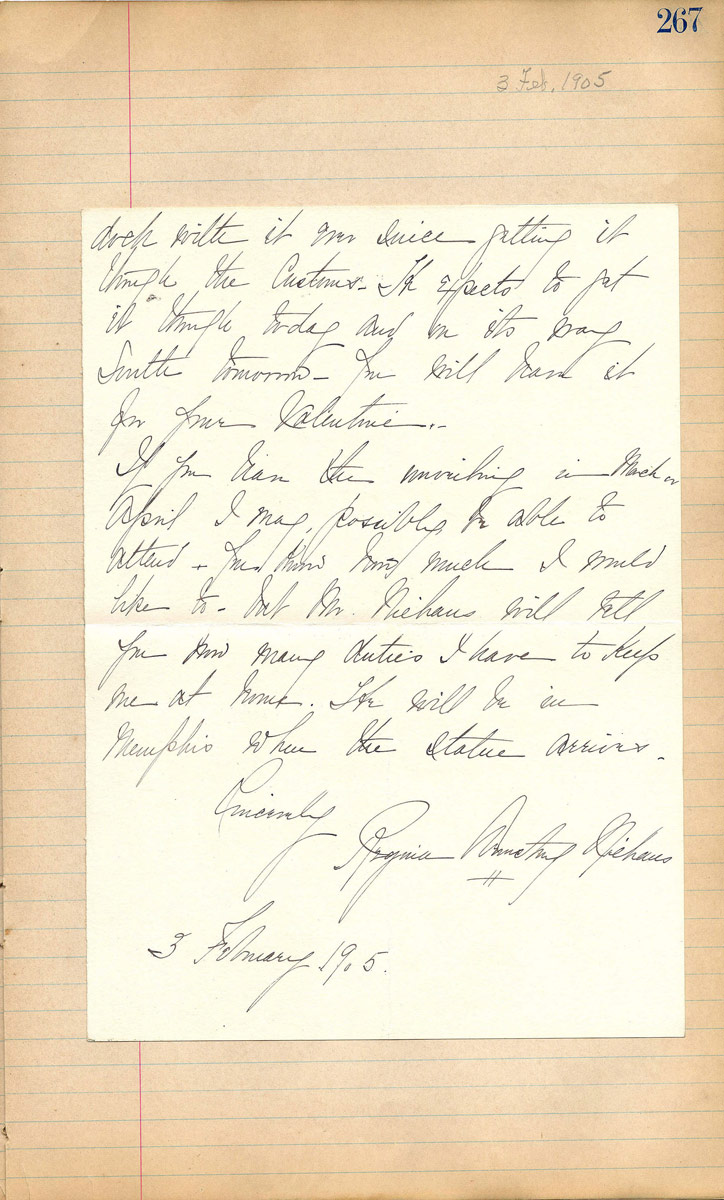 267
3 Feb. 1905
dock with it ever since getting it
through the Customs - He expects to get
it through today and on its way
South tomorrow - You will have it
for your Valentine. -
If you have the unveiling in March or
April I may, possibly, be able to
attend - You know how much I would
like to - but Mr. Niehaus will tell
you how many duties I have to keep
me at home. He will be in
Memphis when the statue arrives -
Sincerely
Regina Armstrong Niehaus
3 February 1905.